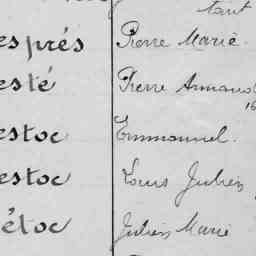 tant
esprés Pierre Marie.
esté Pierre Armand
16
estoc Emmanuel.
estoc Louis Julien
étoc Julien Marie